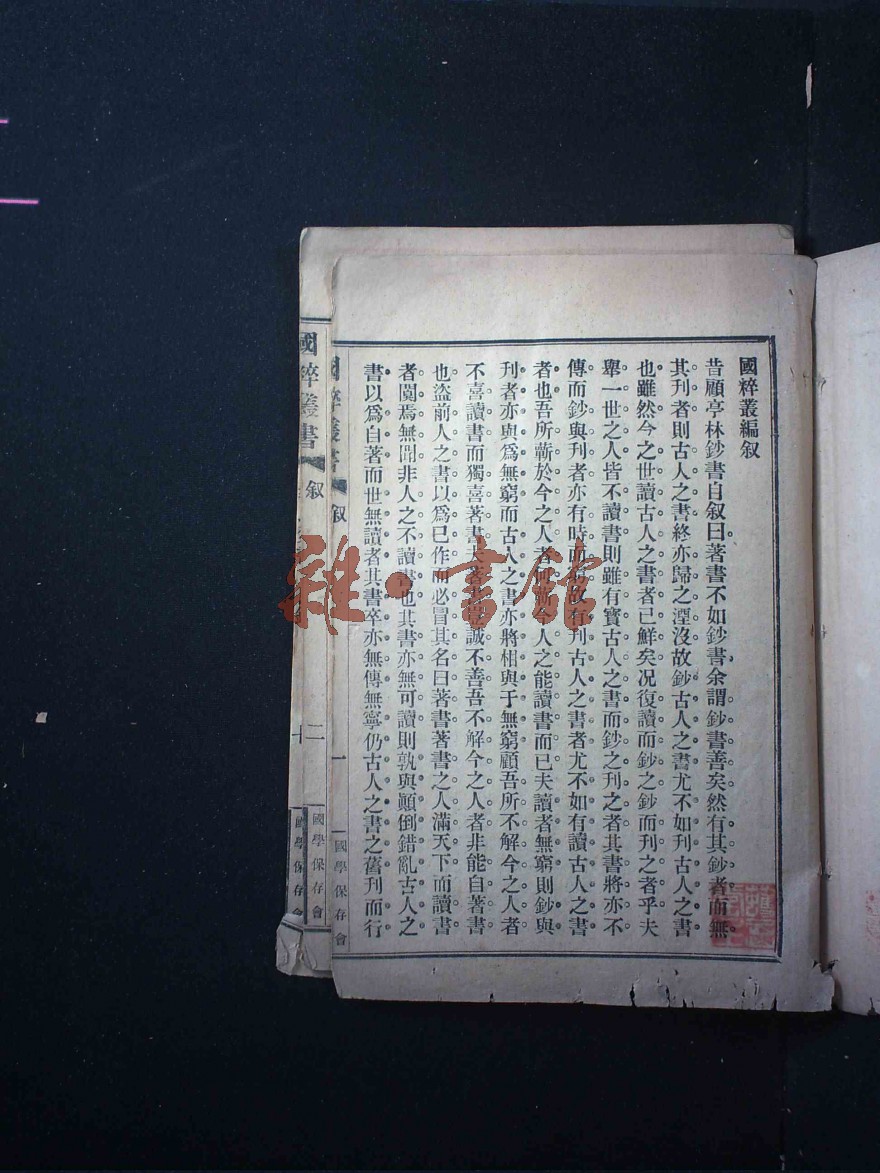 國粹叢編叙
昔顧亭林鈔書自叙曰著書不如鈔書余謂鈔書善矣然有其鈔者而無
其刊者則古人之書終亦歸之湮沒故鈔古人之書尤不如刊古人之書
也雖然今之世讀古人之書者已鮮矣况復讀而鈔之鈔而刊之者乎夫
舉一世之人皆不讀書則雖有寳古人之書而鈔之刊之者其書將亦不
傳而鈔與刊者亦有時而窮故有刊古人之書者尤不如有讀古人之書
者也吾所蘄於今之人者何蘄今人之能讀書而已夫讀者無窮則鈔與
刊者亦與爲無窮而古人之書亦將相與于無窮顧吾所不解今之人者
不喜讀書而獨喜著書夫著書豈誠不善吾不解今之人者非能自著書
也盜前人之書以爲已作而必冒其名曰著書著書之人滿天下而讀書
者闃焉無聞非人之不讀書也其書亦無可讀則孰與顚倒錯亂古人之
書以爲自著而世無讀者其書卒亦無傳無寧仍古人之書之舊刊而行
國粹叢書 叙 一 國學保存會
國粹叢書 叙 二 國學保存會
十 國學保存會
雜·書館